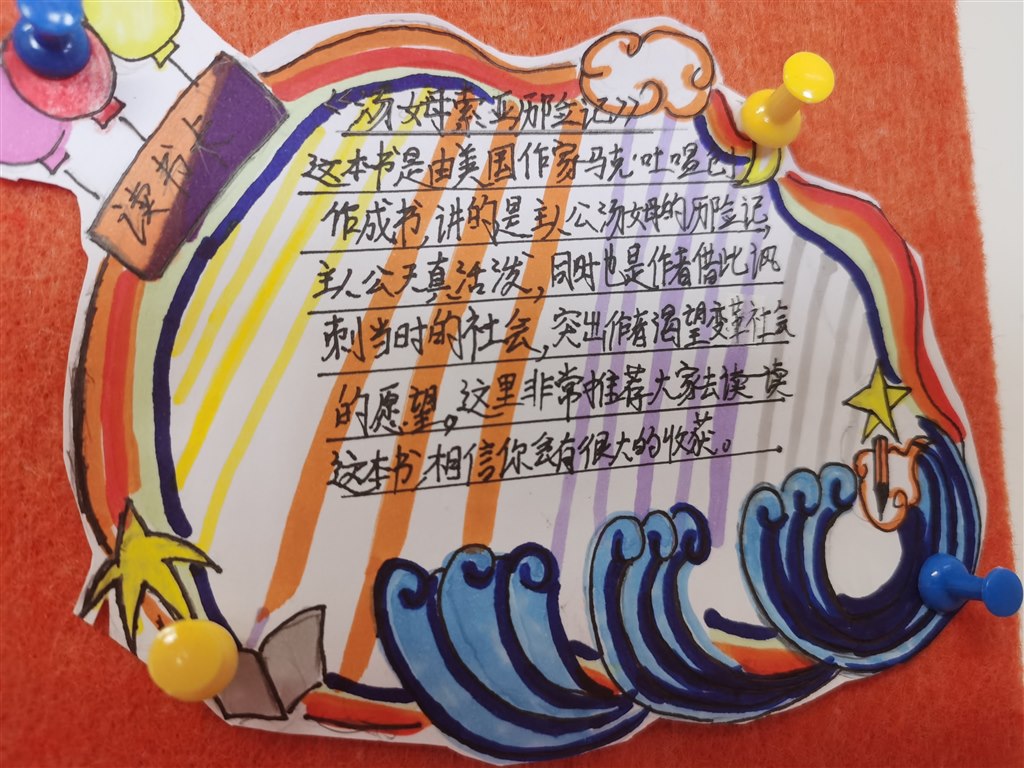 读书卡
《汤姆索亚历险记》
这本书是由美国作家马克·吐温创
作成书,讲的是主人公汤姆的历险记,
主人公天真活泼,同时也是作者借此讽
刺当时的社会,突出作者渴望变革社会
的愿望。这里非常推荐大家去读一读
这本书,相信你会有很大的收获。